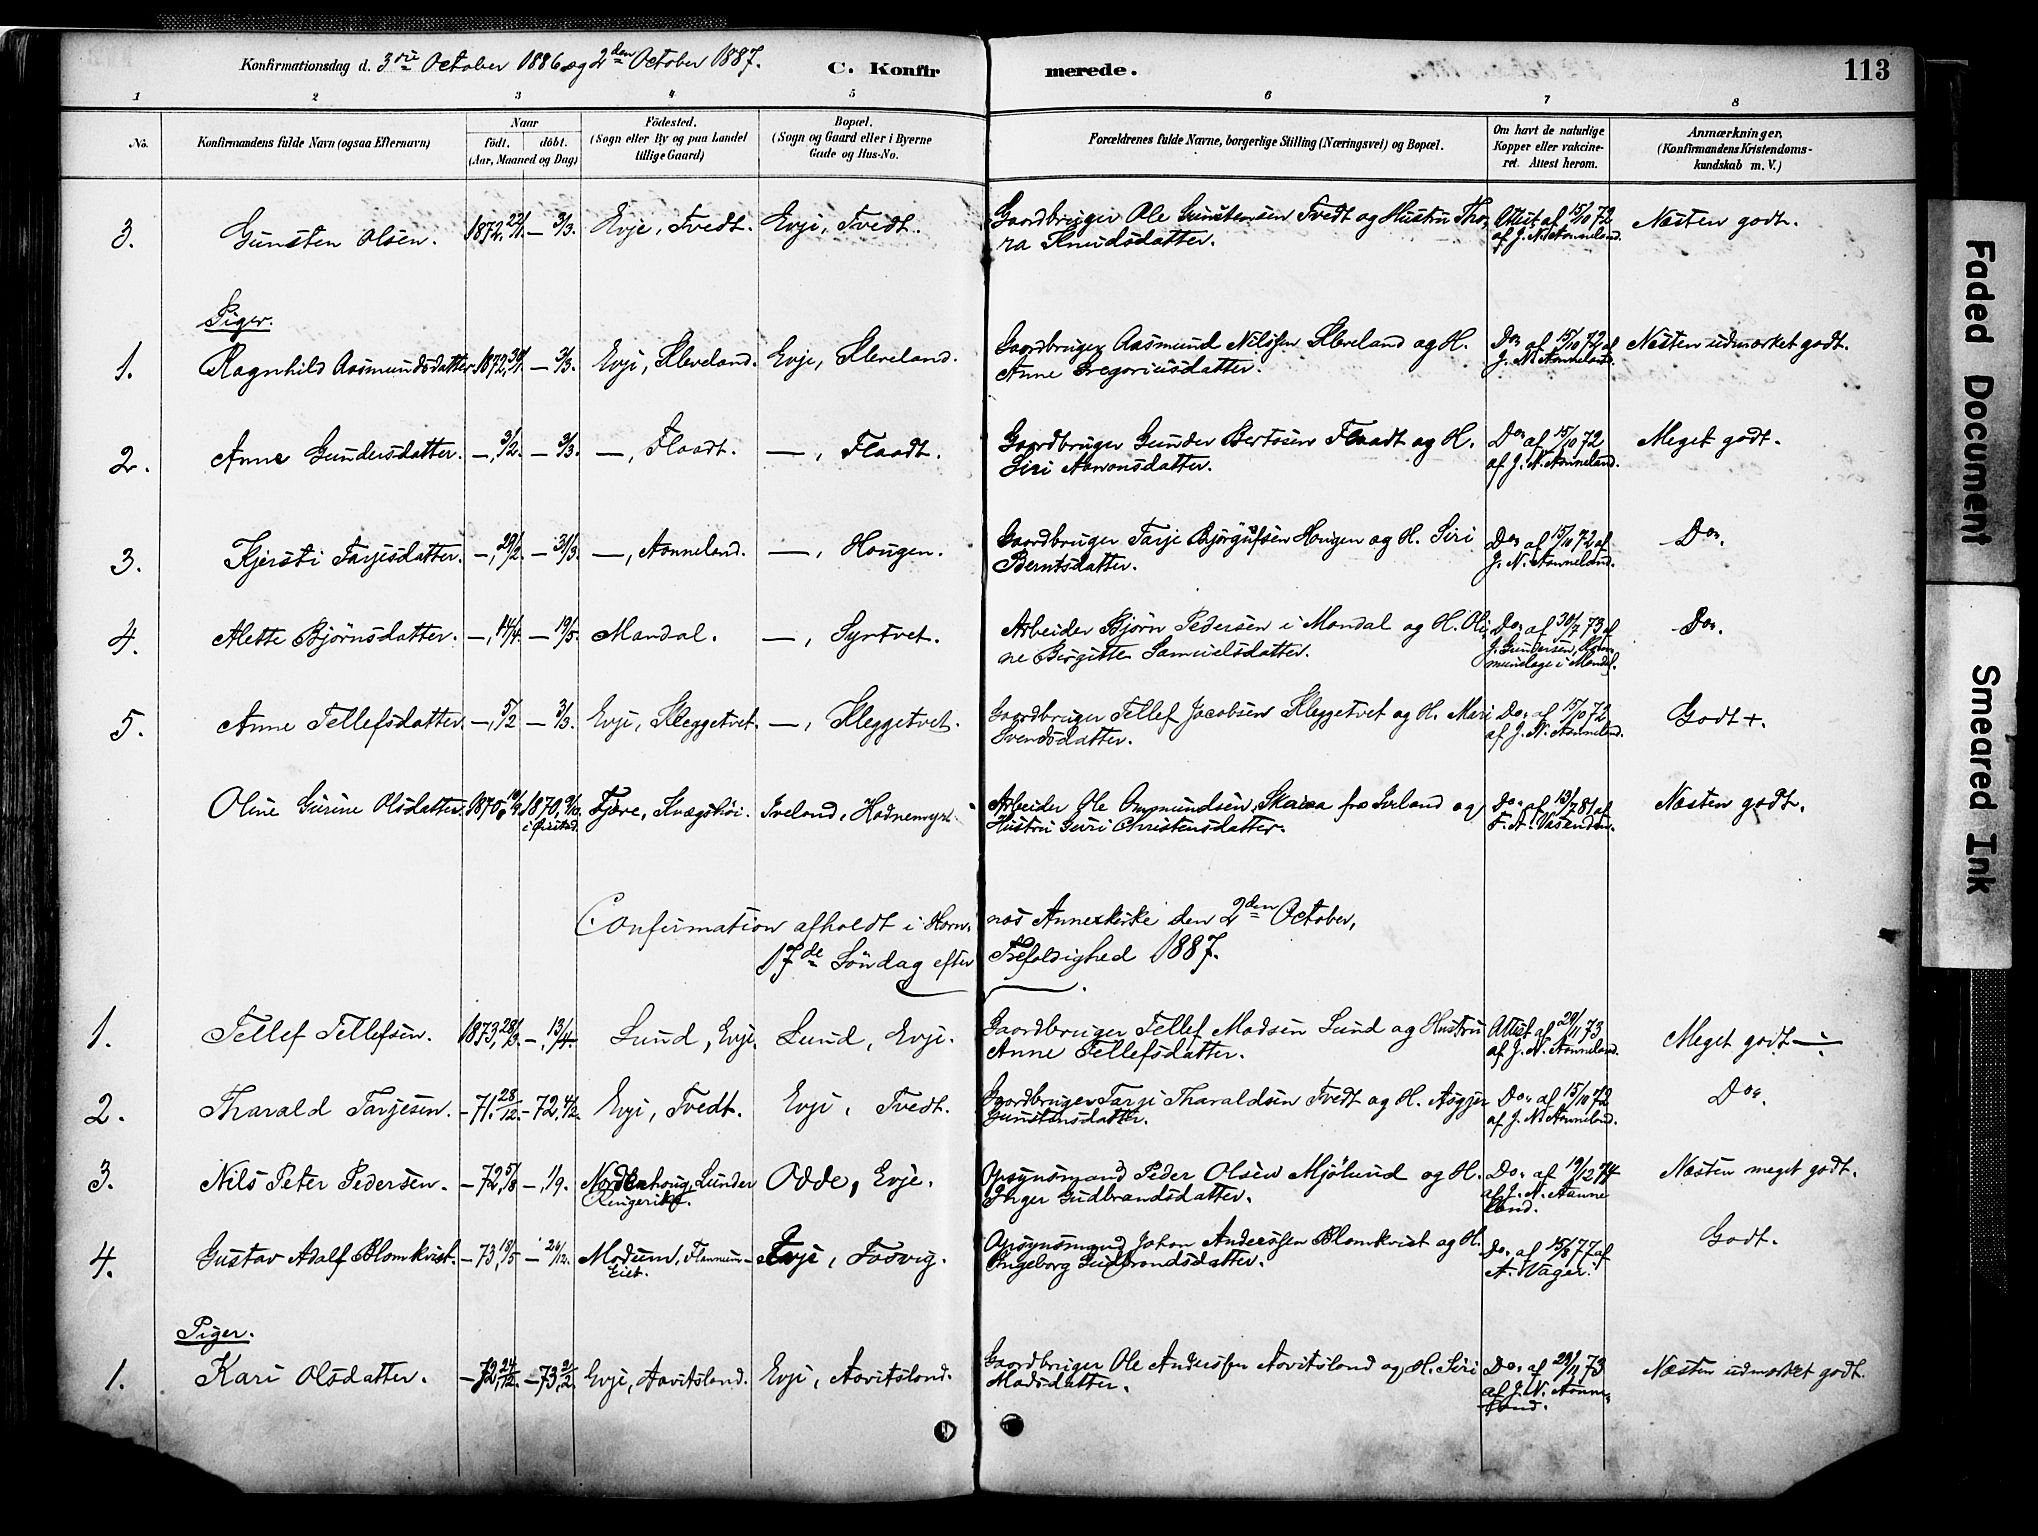 Konfirmationsdag d. 3die October 1886 og 2den October 1887.
C. Konfirmerede.
113
1 2 3 4 5 6 7 8
No.
Konfirmandens fulde Navn (ogsaa Efternavn)
Naar
født. døbt.
(Aar, Maaned og Dag)
Fødested.
(Sogn eller By og paa Landet
tillige Gaard)
Bopæl.
(Sogn og Gaard eller i Byerne
Gade og Hus-No.
Forældrenes fulde Navne, borgerlige Stilling (Næringsvei) og Bopæl.
Om havt de naturlige
Kopper eller vakcine-
ret. Attest herom.
Anmærkninger.
(Konfirmandens Kristendoms-
kundskab m. V.)
3. Gunsten Olsen. 1872, 22/1. — 3/3. Evje, Tvedt. Evje, Tvedt. Gaardbruger Ole Gunstensen Tvedt og Hustru Tho- Attest af 15/10 72 Næsten godt.
ra Knudsdatter. af J. N. Aanneland.
Piger.
1. Ragnhild Aasmundsdatter 1872, 30/1. — 3/3. Evje, Kleveland. Evje, Kleveland. Gaardbruger Aasmund Nilssen Kleveland og H. Do. af 15/10 72 af Næsten udmærket godt.
Anne Gregoriusdatter. J. N. Aanneland.
2. Anne Gundersdatter. —, 3/2. — 3/3. —, Flaadt. —, Flaadt. Gaardbruger Gunder Bertsen Flaadt og H. Do. af 15/10 72 Meget godt.
Siri Aanonsdatter. af J. N. Aanneland.
3. Kjersti Tarjesdatter. —, 29/2. — 31/3. —, Aanneland. —, Hougen. Gaardbruger Tarje Bjørgufsen Hougen og H. Siri Do. af 15/10 72 af Do.
Berntsdatter. J. N. Aanneland.
4. Alette Bjørnsdatter. —, 14/4. — 19/5. Mandal. —, Syrtvet. Arbeider Bjørn Pedersen i Mandal og H. Oli- Do. af 30/7 73 af Do.
ne Birgitte Samuelsdatter. J. Gundersen, Kom-
munelæge i Mandal.
5. Anne Tellefsdatter —, 5/2 — 3/3. Evje, Kleggetvet. —, Kleggetvet. Gaardbruger Tellef Jacobsen Kleggetvet og H. Mari Do. af 15/10 72 Godt +.
Svendsdatter. af J. N. Aanneland.
Oline Gurine Olsdatter. 1870, 10/9. 1870, 9/10. Fjære, Iveland, Arbeider Ole Omundsen Skaiaa fra Iveland og Do. af 13/7 81 af Næsten godt.
Hustru Guri Christensdatter.
Confirmation afholdt i Hornnæs Annexkirke den 2den October,
17de Søndag efter Trefoldighed 1887.
1. Tellef Tellefsen. 1873, 28/3. —, 13/4. Lund, Evje. Lund, Evje. Gaardbruger Tellef Madsen Lund og Hustru Attest af 29/11 73 Meget godt ÷
Anne Tellefsdatter. af J. N. Aanneland.
2. Tharald Tarjesen. — 71, 28/12. — 72, 4/2. Evje, Tvedt. Evje, Tvedt. Gaardbruger Tarje Tharaldsen Tvedt og H. Asgjer Do. af 15/10 72 Do.
Gunstensdatter. af J. N. Aanneland.
3. Nils Peter Pedersen. — 72, 5/8 —, 1/9. Norderhoug, Lunder Odde, Evje. Opsynsmand Peder Olsen Mjølund og H. Do. af 19/12 74 Næsten meget godt.
Ringerike. Inger Gudbrandsdatter. af J. N. Aanne
land.
4. Gustav Adolf Blomkvist. — 73, 18/5 — 26/12. Modum, Evje, Fosvig. Opsynsmand Johan Anderssen Blomkvist og H. Do. af 15/8 77 af Godt.
Eiet. Ingeborg Gudbrandsdatter. A. Vager.
Piger.
1. Kari Olsdatter. — 72, 24/12. — 73, 2/2. Evje, Aavitsland. Evje, Aavitsland. Gaardbruger Ole Anderssen Aavitsland og H. Siri Do. af 29/11 73 Næsten udmærket godt.
Madsdatter. af J. N. Aanne-
land.
Faded Document
Smeared Ink